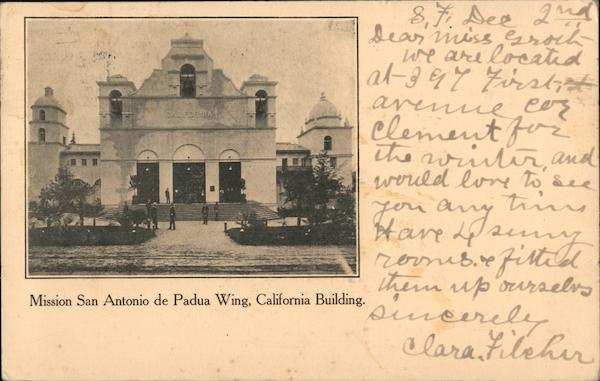 CALIFORNIA
Mission San Antonio de Padua Wing, California Building.
S.F. Dec 2nd
Dear Miss
We are located
at 397 First
avenue cor
Clement for
the winter, and
would love to see
you any time
Have 4 sunny
rooms & fitted
them up ourselves
sincerely
Clara Filcher